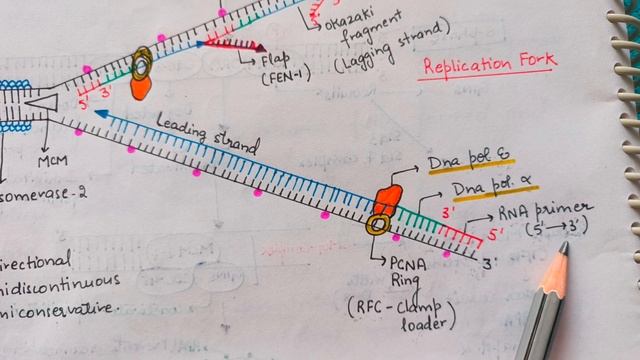 Okazaki
fragment
(Lagging strand)
Flap
(FEN-1)
Replication Fork
5'
3'
Leading strand
MCM
somerase-2
Dna pol ε
Dna pol. α
3'
RNA primer
(5'→3')
5'
3'
PCNA
Ring
(RFC-clamp
loader)
irectional
nidiscontinuous
niconservative.